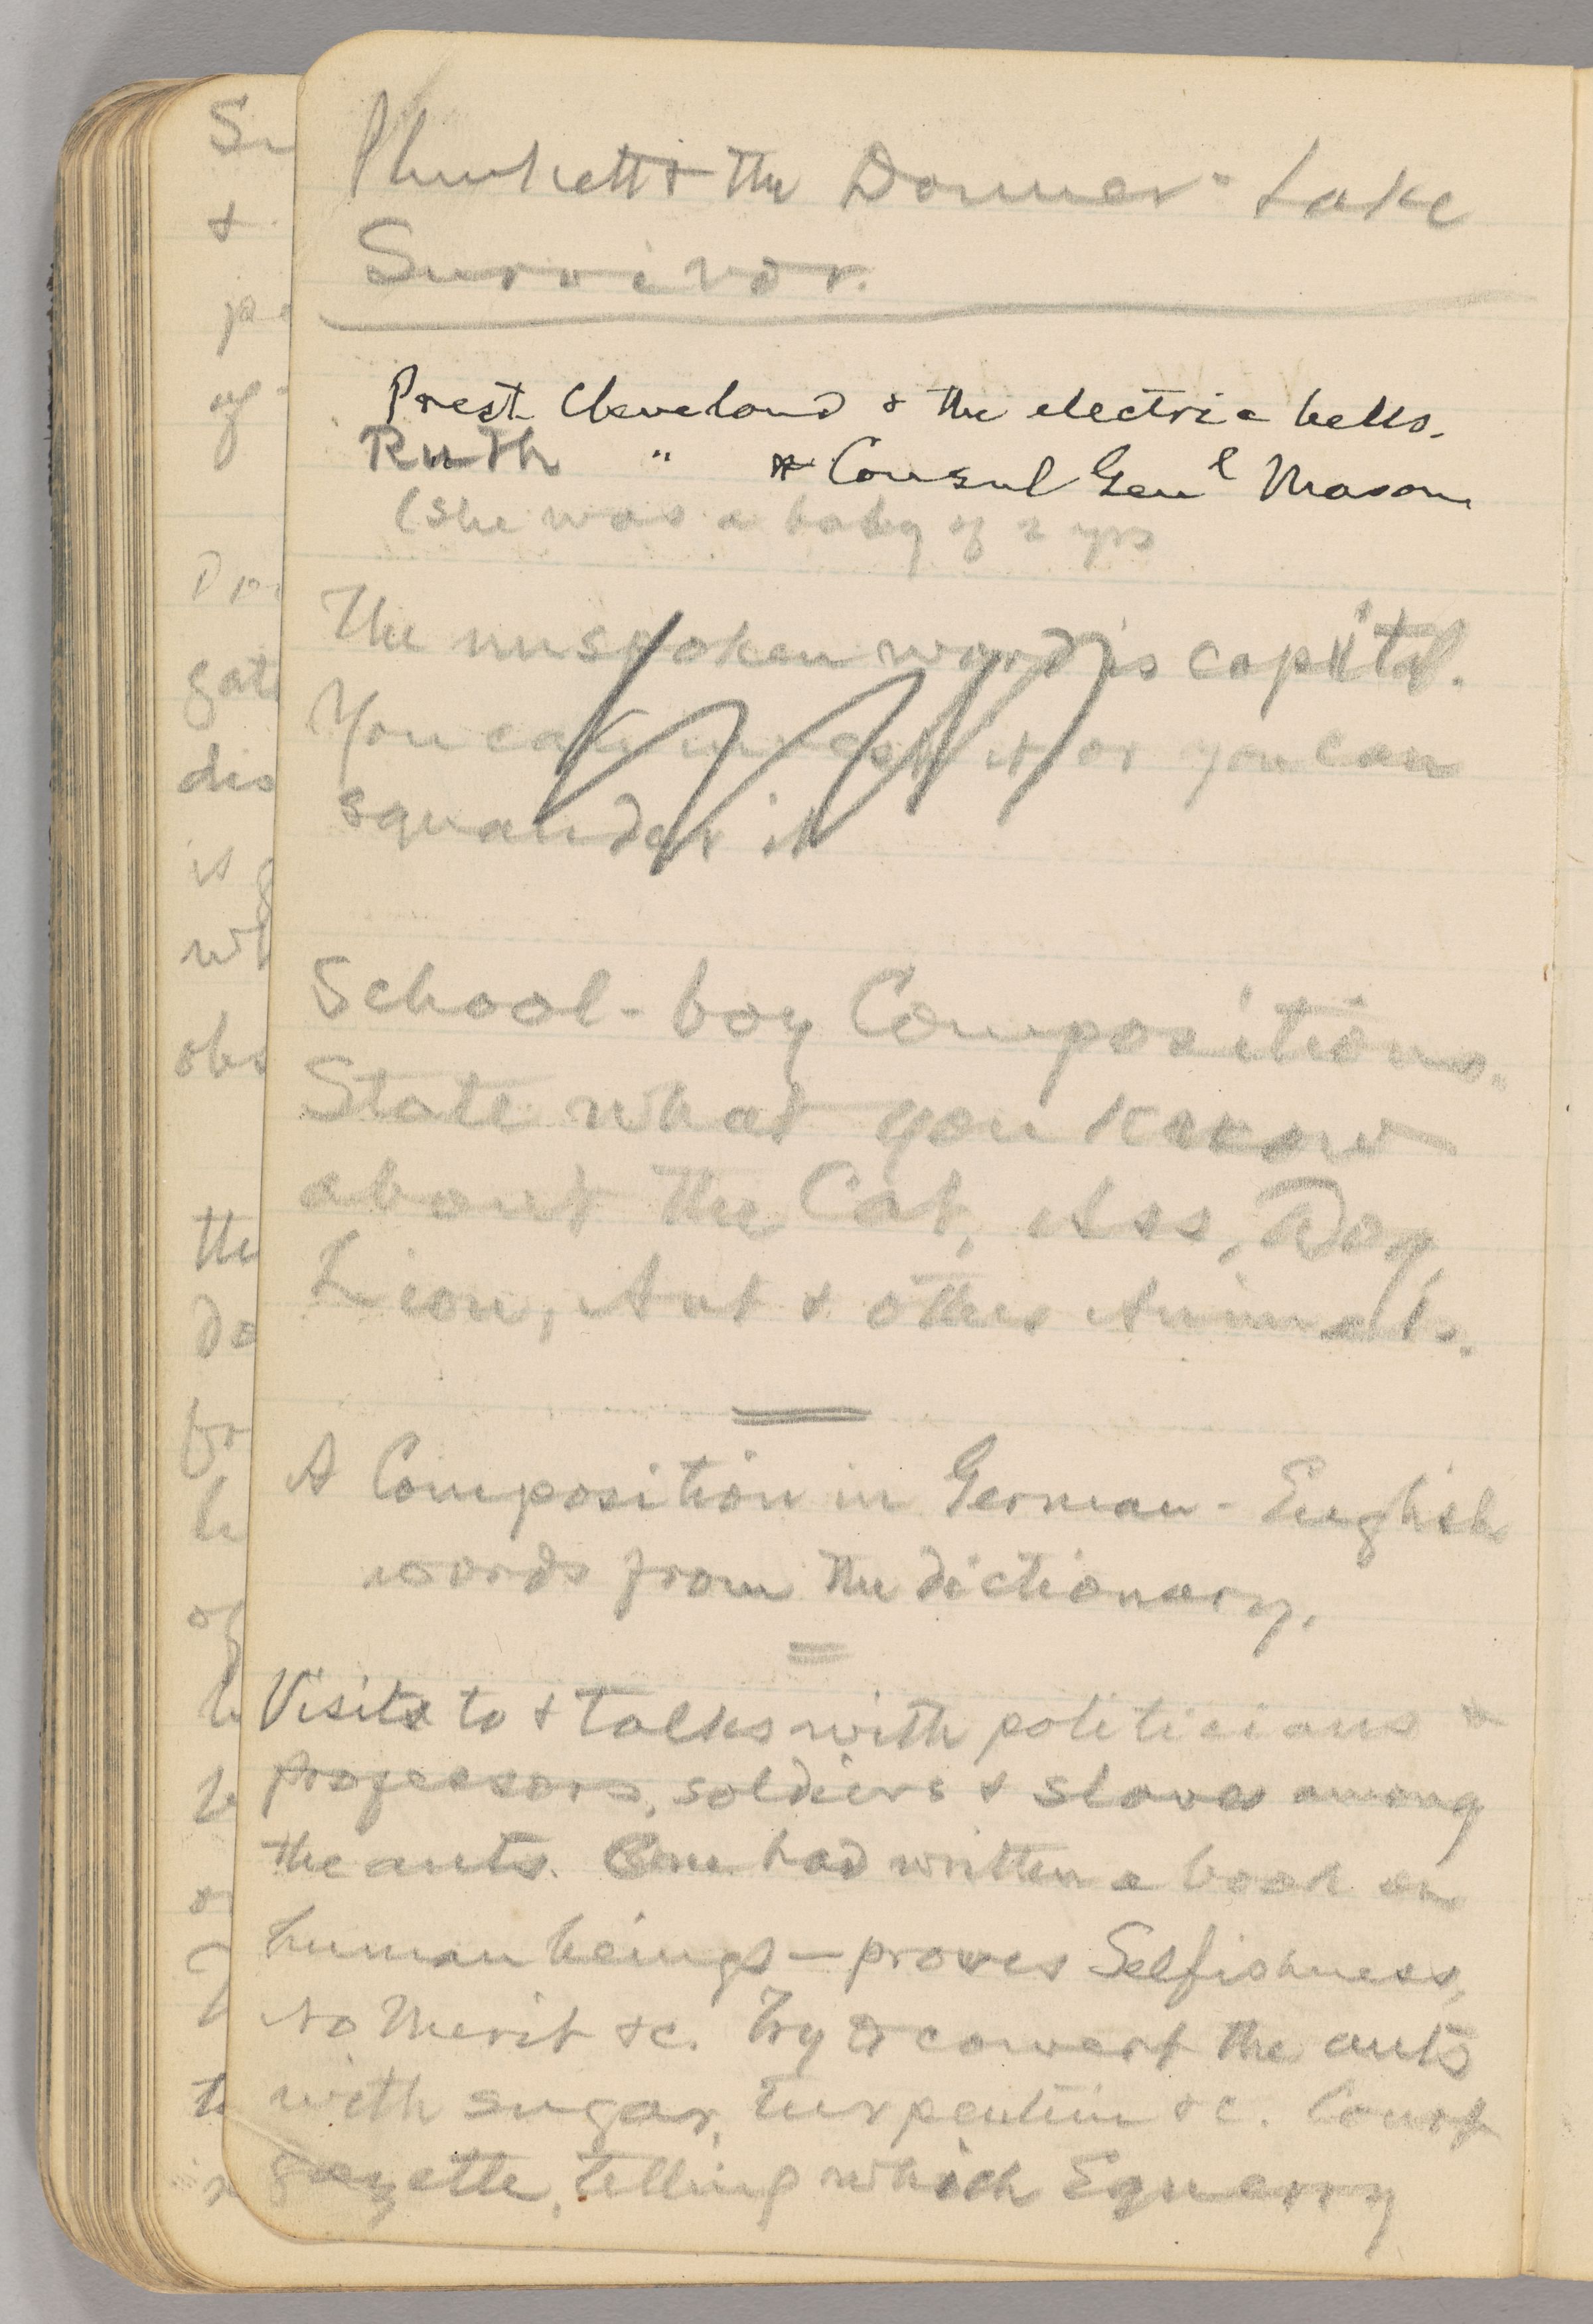 Plunkett & the Donner Lake
Survivor.
Prest Cleveland & the electric bells.
Ruth " & Consul Genl Mason
(She was a baby of 2 yrs
The unspoken word is capital.
You can invest it or you can
squander it
School-boy Compositions.
State what you know
about the Cat, Ass, Dog,
Lion, Ant & other Animals.
A Composition in German-English
words from the dictionary.
Visits to & talks with politicians &
professors, soldiers & slaves among
the ants. One had written a book on
human beings—proves Selfishness,
No Merit &c. Try to convert the ants
with sugar, turpentine &c. Court
gazette, telling which Equerry